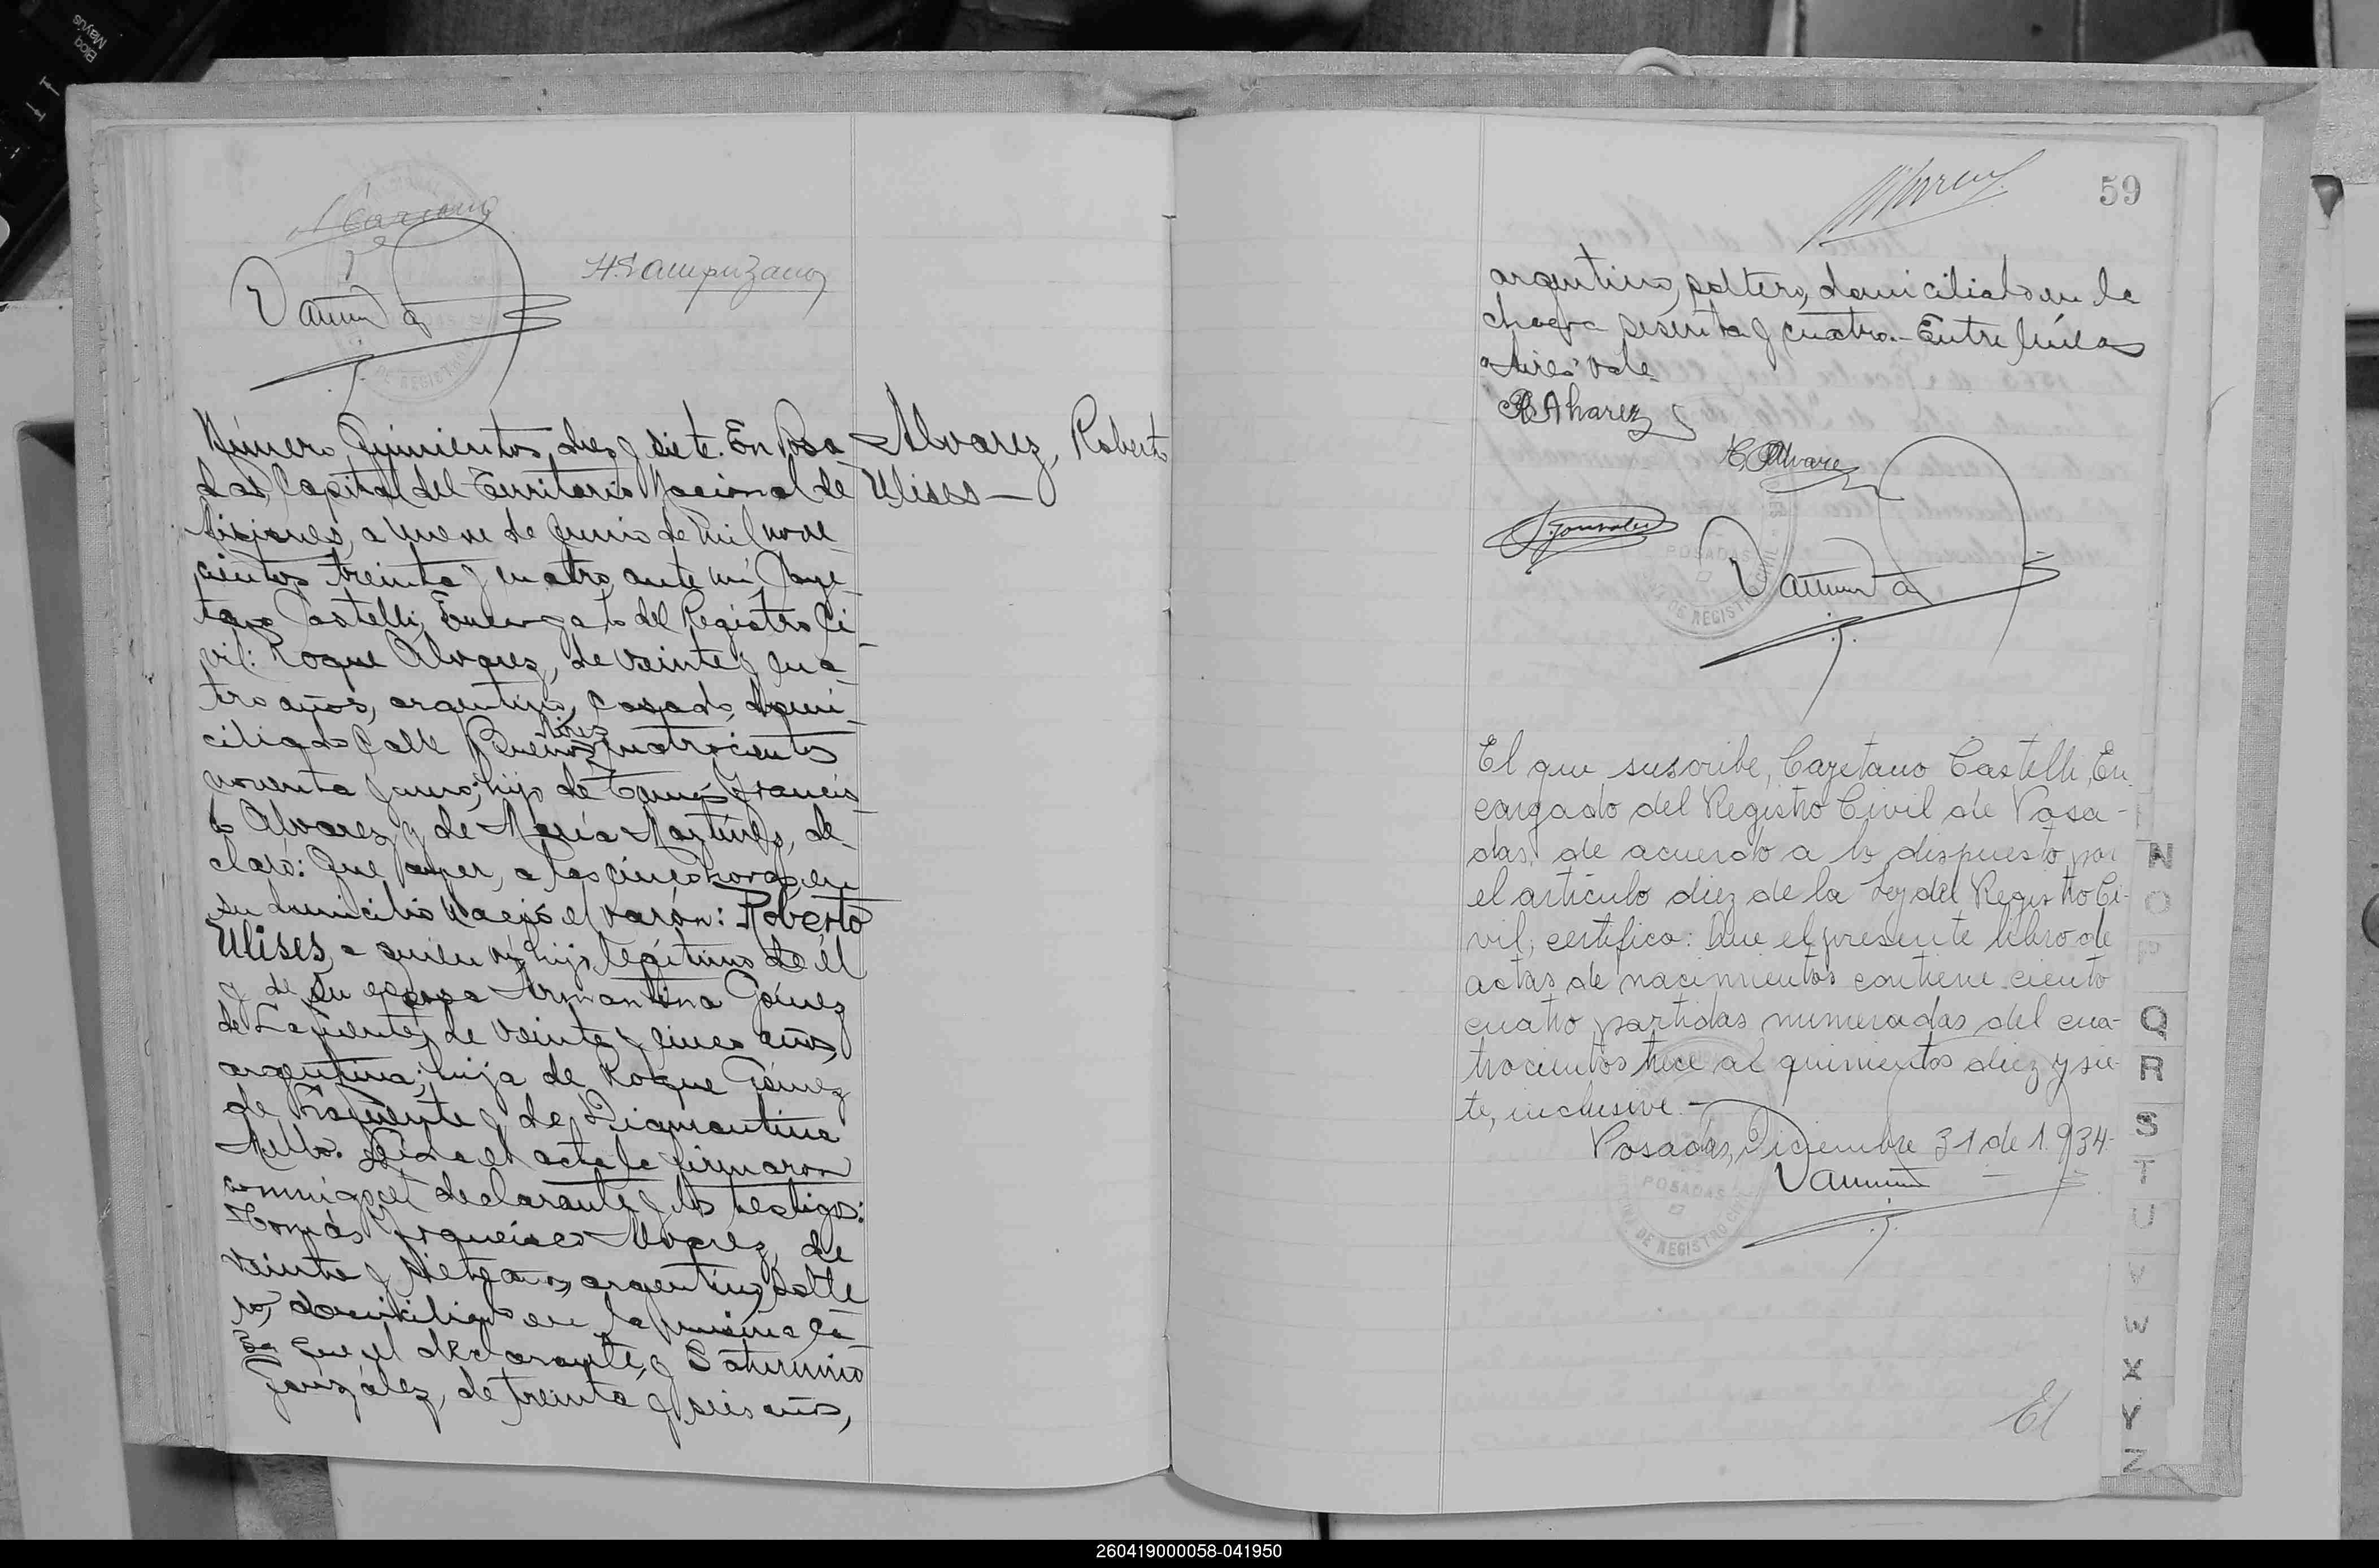 H. Campuzano
Número Quinientos diez y siete. En Posa
das, Capital del Territorio Nacional de
Misiones, a nueve de Junio de mil nove-
cientos treinta y cuatro, ante mí, Caye-
tano Castelli, Encargado del Registro Ci-
vil: Roque Alvarez, de veinte y cua-
tro años, argentino, casado, domi-
ciliado calle Buenos Aires cuatrocientos
noventa y uno; hijo de Tomás Francis-
co Alvarez y de María Martínez, de-
claró: Que ayer, a las cinco horas, en
su domicilio nació el varón: Roberto
Ulises, a quien ví, hijo legítimo de él
y de su esposa Armantina Gómez
de Lafuente, de veinte y cinco años,
argentina; hija de Roque Gómez
de Lafuente y de Diamantina
Mello. Leída el acta la firmaron
conmigo el declarante y los testigos:
Tomás Francisco Alvarez, de
veinte y siete años, argentino, solte
ro, domiciliado en la misma ca-
sa que el declarante, y Saturnino
González, de treinta y seis años,
Alvarez, Roberto
Ulises—
59
argentino, soltero, domiciliado en la
chacra sesenta y cuatro.- Entre líneas
"Aires" vale
R Alvarez
Alvarez
Gonzalez
POSADAS
DE REGISTRO CIVIL
El que suscribe, Cayetano Castelli, En
cargado del Registro Civil de Posa-
das, de acuerdo a lo dispuesto por
el artículo diez de la Ley del Registro Ci-
vil, certifica: Que el presente libro de
actas de nacimientos contiene ciento
cuatro partidas numeradas del cua-
trocientos trece al quinientos diez y sie-
te, inclusive.-
Posadas, Diciembre 31 de 1.934-
POSADAS
DE REGISTRO CIVIL
El
N
O
P
Q
R
S
T
U
V
W
X
Y
Z
260419000058-041950